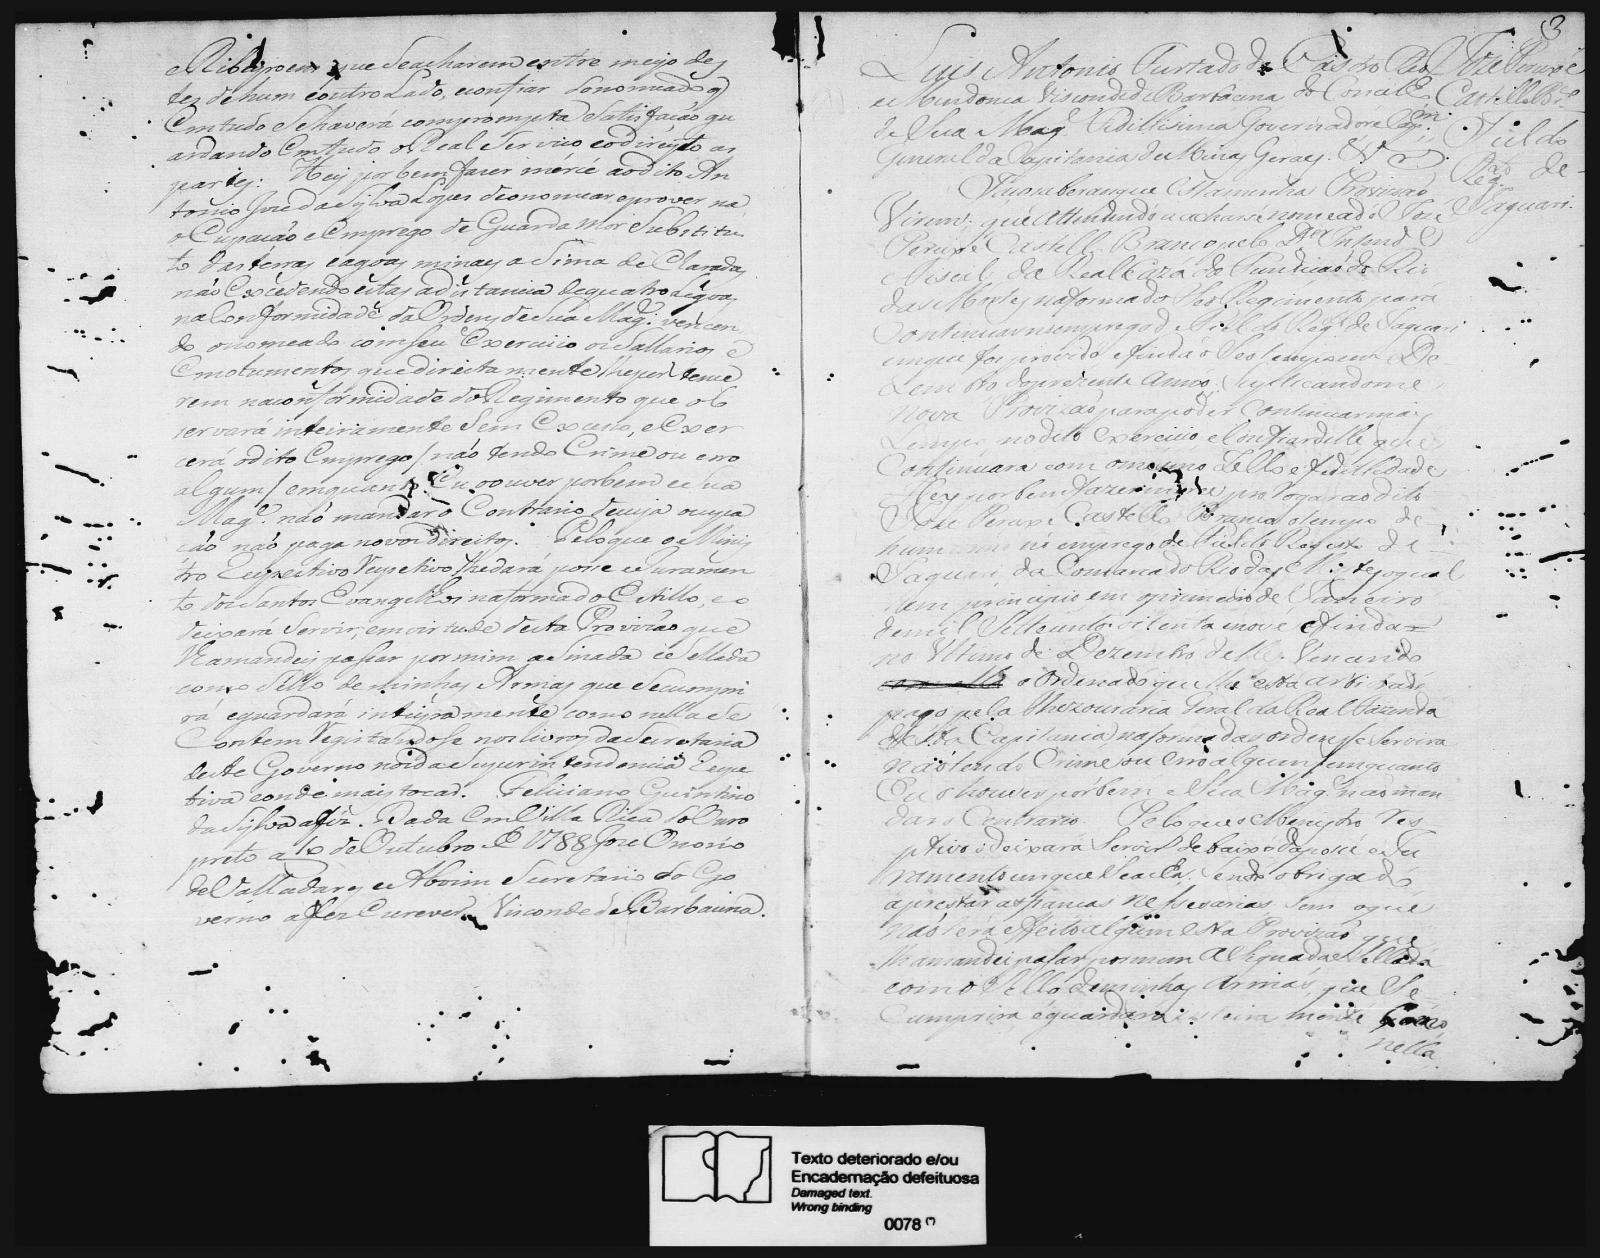 e Ribeyroens que Seacharem entre meyo des
tes de hum e outro Lado, e confiar do nomeado q
Em tudo Sehaverá com prompta Satisfação gu
ardando Em tudo o Real Serviço e o direyto as
partes: Hey por bem fazer mercé ao dito An
tonio Joze da Sylva Lopes de o nomear, e prover na
o Cupação e Emprego de Guarda Mor Substitu
to das terras e agoas minaes aSima de Claradas
não Excedendo estas a distancia de quatro Legoas
na Conformidade da Ordem de Sua Magᵉ: vencen
do o nomeado com seu Exercicio os Sallarios e
Emolumentos que direita mente lhe per tence
rem na conformidade do Regimento que ob
servará inteiramente Sem Excesso, e Exer
cerá o dito Emprego / não tendo Crime ou erro
algum / emquanto Eu o ouver por bem e Sua
Magᵉ. não mandar o Contrario de cuja ocupa
ção não paga novos direitos. Pelo que o Minis
tro Respectivo lhe dará posse e Juramen
to dos Santos Evangelhos na forma do Estillo, e o
deixará Servir, em virtude desta Provizão que
lhe mandey passar por mim aSinada e Sellada
com o Sello de minhas Armas que Se cumpri
rá e guardará inteyra mente como nella se
Contem Registandose nos livros da Secretaria
deste Governo nos da Superintendencia Respe
tiva e onde mais tocar. Feliciano Quintino
da Sylva a fez. Dada Em Villa Rica do Ouro
preto a 10 de Outubro de 1788 Joze Onorio
de Valladares e Aboim Secretario do Go
verno a fez Escrever Visconde de Barbacena.
3
Luis Antonio Furtado de Castro Rio
e Mendonca Visconde de Barbacena do Concelho
de Sua Magᵉ Fidellissima Governador e Capᵐ.
General da Capitania de Minas Geraes. &ᵃ
Joze Peruxe
Castello Brᶜᵒ
Fiel do
Regᵗᵒ de
Jaguari.
Faço saber aos que Esta minha Provizão
Virem; que Attendendo a achar-se nomeado Joze
Peruxe Castello Branco pelo Dᵒʳ Intendᵉ
Fiscal da Real Caza da Fundição do Rio
das Mortes na forma do Seo Regimento para
Continuar no emprego de Fiel do Regᵗᵒ de Jaguari
em que foi provido e finda o Seo tempo em De-
zembro do prezente Anno, Suplicandome
Nova Provizão para poder Continuar mais
tempo no dito exercicio e Confiar delle que
Continuara com o mesmo Zello e fidelidade
Hey por bem fazer merce prologar ao dito
Joze Peruxe Castello Branco o tempo de
hum anno no emprego de Fiel do Registo de
Jaguari, da Comarca do Rio das Mortes o qual
tem principio em o primeiro de Janeiro
de mil Sette centos oitenta e nove e finda
no Ultimo de Dezembro delle. Vencendo
o Ordenado que lhe esta arbitrado
pago pela Thezouraria Geral da Real Fazenda
desta Capitania, na forma das ordens, e Servira
não tendo Crime ou erro algum / emquanto
Eu o houver por bem e Sua Magᵉ. não man
dar o Contrario. Pelo que o Menystro Res
petivo o deixará Servir debaixo da posse e Ju
ramento em que Se acha, sendo obrigado
a prestar as fiancas nessesarias Sem o que
não terá effeito algum esta Provizão que
lhe mandei passar por mim aSignada e Sellada
com o Sello de minhas Armas, que Se
Cumprira e guardará inteira mente Como
nella
Texto deteriorado e/ou
Encadernação defeituosa
Damaged text.
Wrong binding
0078 (*)